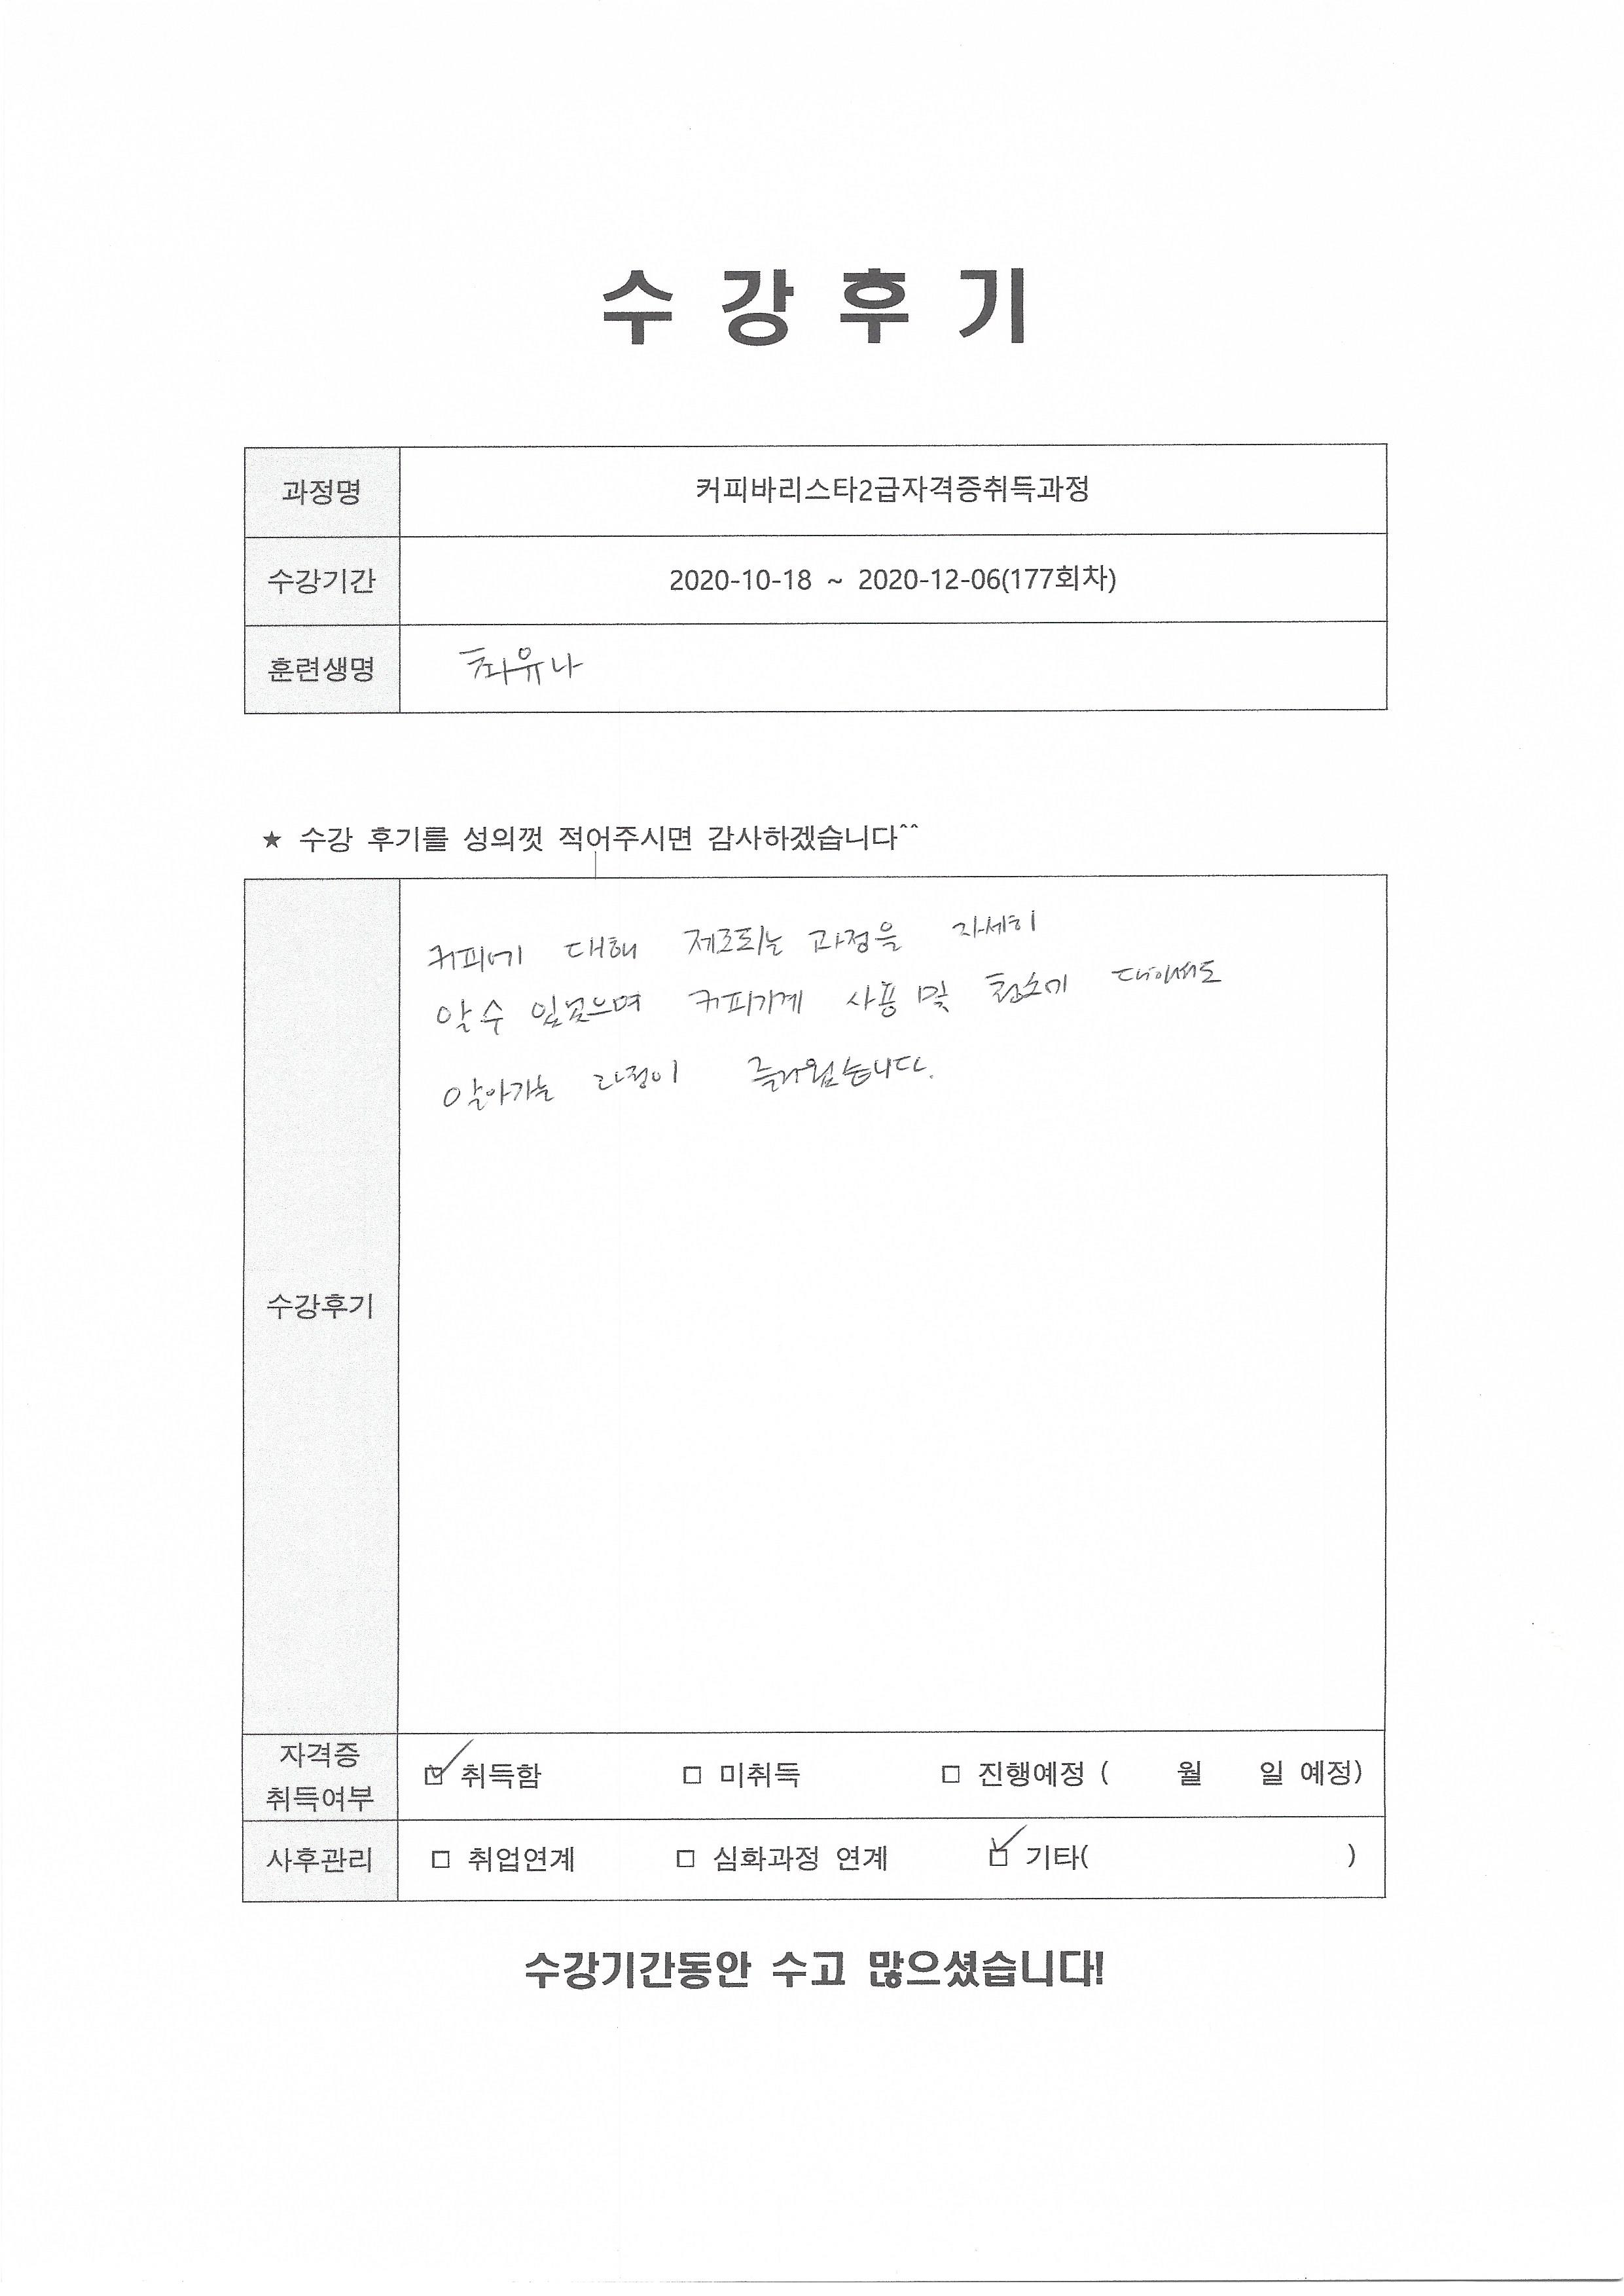 수 강 후 기
과정명 커피바리스타2급자격증취득과정
수강기간 2020-10-18 ~ 2020-12-06(177회차)
훈련생명 최유나
★ 수강 후기를 성의껏 적어주시면 감사하겠습니다^^
커피에 대해 제조되는 과정을 자세히
알 수 있었으며 커피기계 사용 및 청소에 대해서도
알아가는 과정이 즐거웠습니다.
수강후기
자격증
취득여부
☑ 취득함 □ 미취득 □ 진행예정 ( 월 일 예정)
사후관리 □ 취업연계 □ 심화과정 연계 ☑ 기타( )
수강기간동안 수고 많으셨습니다!